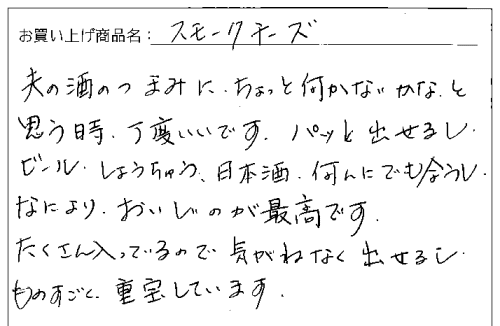 お買い上げ商品名：スモークチーズ
夫の酒のつまみに、ちょっと何かないかな、と
思う時、丁度いいです。パッと出せるし、
ビール、しょうちゅう、日本酒、何んにでも合うし、
なにより、おいしいのが最高です。
たくさん入っているので気がねなく出せるし、
ものすごく、重宝しています。